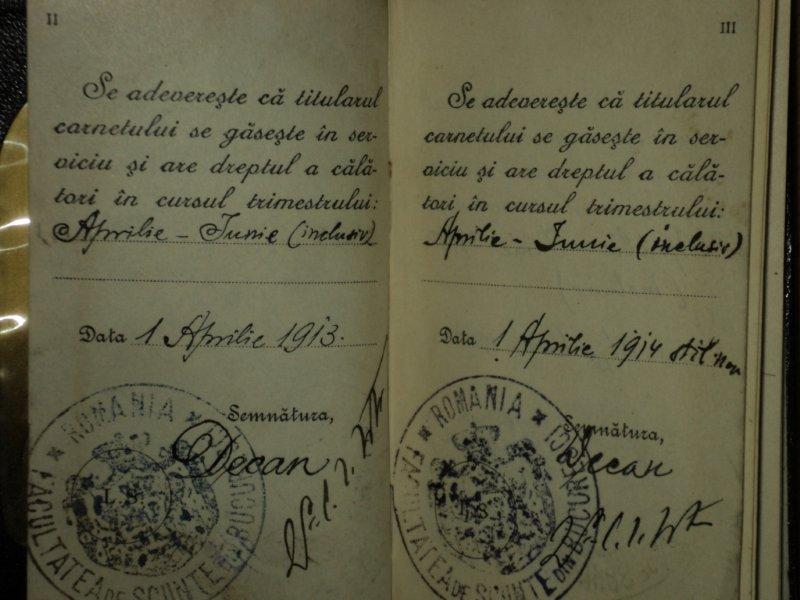 II
Se adevereşte că titularul
carnetului se găseşte în ser-
viciu şi are dreptul a călă-
tori în cursul trimestrului:
Aprilie – Iunie (inclusiv)
Data 1 Aprilie 1913.
Semnătura,
Decan
* ROMANIA *
FACULTATEA DE SCIINTE DIN BUCUR
L.S.
III
Se adevereşte că titularul
carnetului se găseşte în ser-
viciu şi are dreptul a călă-
tori în cursul trimestrului:
Aprilie – Iunie (inclusiv)
Data 1 Aprilie 1914 stil nou
Semnătura,
Decan
* ROMANIA *
FACULTATEA DE SCIINTE DIN BUCUR
L.S.